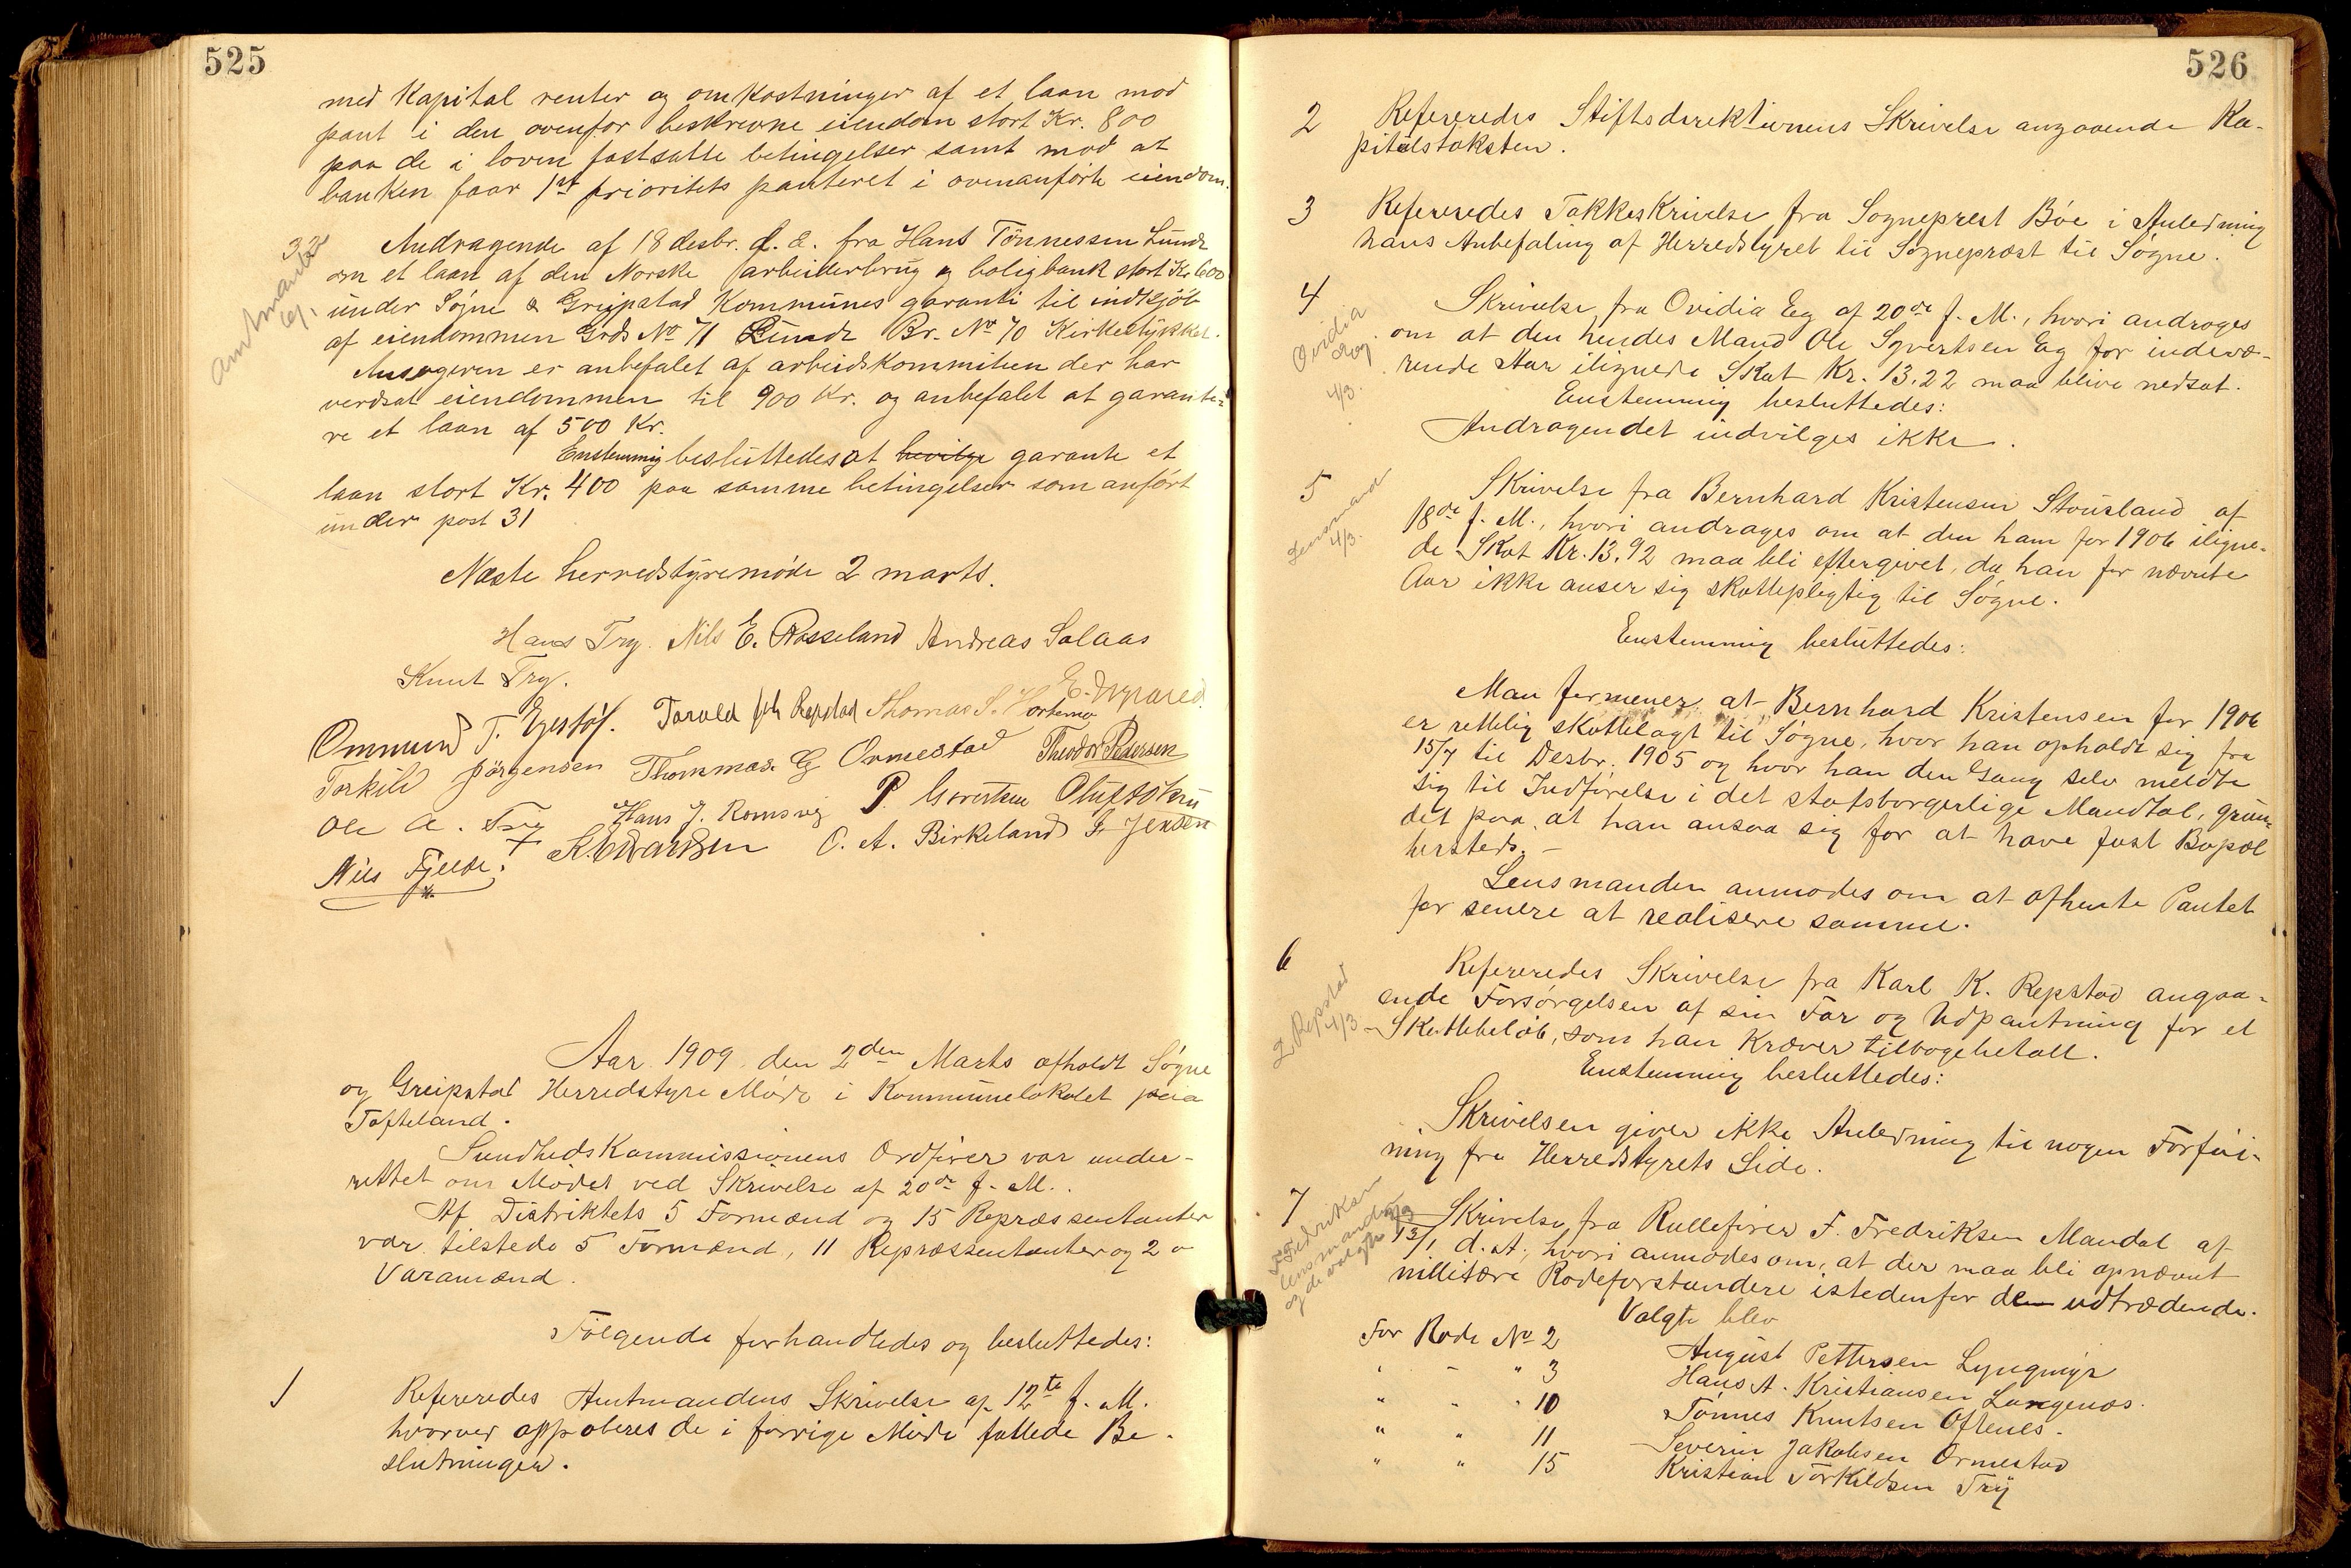 525
med Kapital renter og omkostninger af et laan mod
pant i den ovenfor beskrevne eiendom stort Kr. 800
paa de i loven fastsatte betingelser samt mod at
banken faar 1st prioritets panteret i ovenanførte eiendom.
32
Amtmanden
Andragende af 18 desbr. f. A. fra Hans Tönnessen Lunde
om et laan af den Norske arbeiderbrug og boligbank stort Kr 600
under Søgne & Greipstad Kommunes garanti til indkjöb
af eiendommen Grds No 71 Lunde Br. No 70 Kirkestykket.
Ansøgeren er anbefalet af arbeidskommiteen der har
verdsat eiendommen til 900 Kr. og anbefalet at garante-
re et laan af 500 Kr.
Enstemmig besluttedes at bevilge garante et
laan stort Kr. 400 paa samme betingelser som anført
under post 31
Næste herredstyremøde 2 marts.
Hans Try. Nils E. Rosseland Andreas Salaas
Knut Try.
Ommund T. Egestøl. Tarald Repstad Thomas S. Hortemo
Torkild Jørgensen Thommas G Ormestad Theodor Pedersen
Ole A. Try Hans J. Romsvig P. Syvertsen
Nils Fjelde. O. A. Birkeland Jensen
Aar 1909 den 2den Marts afholdt Søgne
og Greipstad Herredstyre Møde i Kommunelokalet paa
Tofteland.
SundhedsKommissionens Ordfører var under-
rettet om Mødet ved Skrivelse af 20de f. M..
Af Distriktets 5 Formænd og 15 Repræssentanter
var tilstede 5 Formænd, 11 Repræssentanter og 2
Varamænd.
Følgende forhandledes og besluttedes:
1
Refereredes Amtmandens Skrivelse af 12te f. M.
hvorved approberes de i forrige Møde fattede Be-
slutninger.
526
2
Refereredes Stiftsdirektionens Skrivelse angaaende Ka-
pitelstaksten.
3
Refereredes Takkeskrivelse fra Sogneprest Bøe i Anledning
hans Anbefaling af Herredstyret til Sogneprœst til Søgne.
4
Ovidia
Eg
4/3.
Skrivelse fra Ovidia Eg af 20de f. M., hvori androges
om at den hendes Mand Ole Syvertsen Eg for indevæ-
rende Aar ilignede Skat Kr. 13.22 maa blive nedsat.
Enstemmig besluttedes:
Andragendet indvilges ikke.
5
Lensmand
4/3.
Skrivelse fra Bernhard Kristensen Stousland af
18de f. M., hvori andrages om at den ham for 1906 iligne-
de Skat Kr. 13.92 maa bli eftergivet, da han for nævnte
Aar ikke anser sig skattepligtig til Søgne.
Enstemmig besluttedes:
Man formener at Bernhard Kristensen for 1906
er rettelig skattelagt til Søgne, hvor han opholdt sig fra
15/7 til Desbr. 1905 og hvor han den Gang selv meldte
sig til Indførelse i det statsborgerlige Mandtal, grun-
det paa, at han ansaa sig for at have fast Bopæl
hersteds. -
Lensmanden anmodes om at afhente Pantet
for senere at realisere samme.
6
Repstad
4/3
Refereredes Skrivelse fra Karl K. Repstad angaa-
ende Forsørgelsen af sin Far og Udpantning for et
Skattebeløb, som han kræver tilbagebetalt.
Enstemmig besluttedes:
Skrivelsen giver ikke Anledning til nogen Forføi-
ning fra Herredstyrets Side.
7
F. Fredriksen
lensmanden
og de valgte
4/3
Skrivelse fra Rullefører F. Fredriksen Mandal af
13/1 d. A., hvori anmodes om, at der maa bli opnævnt
millitære Rodeforstandere istedenfor de udtrædende.
Valgte blev
For Rode No 2 August Pettersen Lyngmyr
" - " 3 Hans A. Kristiansen Langenes.
" - " 10 Tönnes Knutsen Oftenes.
" " 11 Severin Jakobsen Ormestad
" " 15 Kristian Torkildsen Try